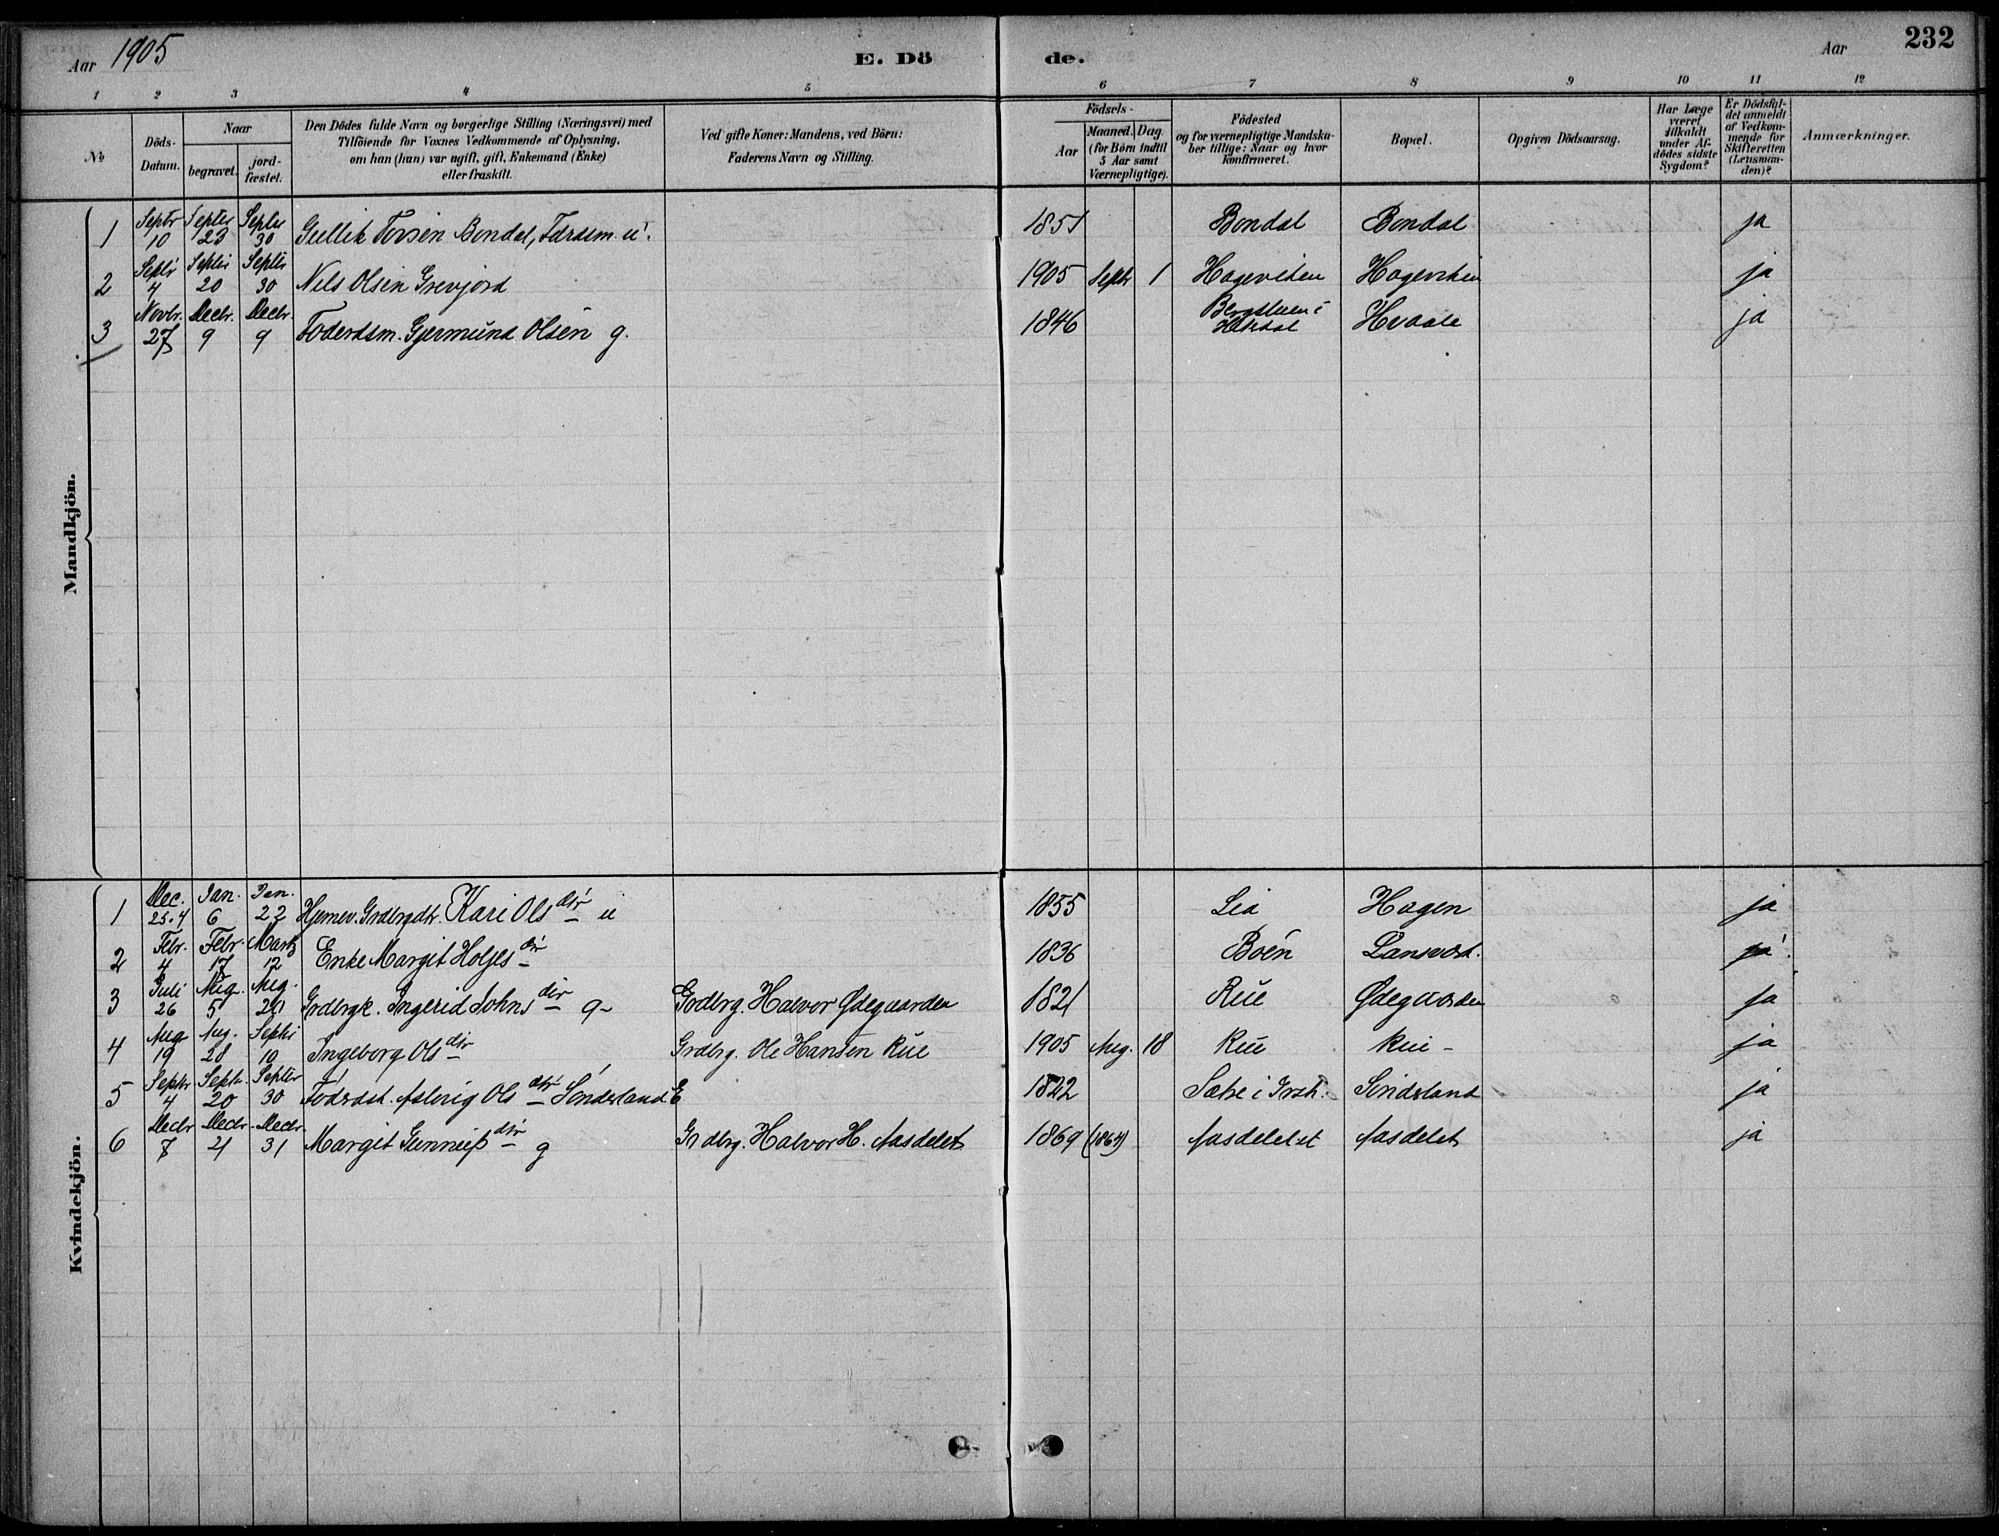 Aar 1905 E. Dö de. Aar 232
1 2 3 4 5 6 7 8 9 10 11 12
No
Döds-Datum.
Naar
begravet.
jord-fæstet.
Den Dödes fulde Navn og borgerlige Stilling (Næringsvei) med
Tilföiende for Voxnes Vedkommende af Oplysning,
om han (hun) var ugift, gift, Enkemand (Enke)
eller fraskilt.
Ved gifte Koner: Mandens, ved Börn:
Faderens Navn og Stilling.
Födsels-
Aar
Maaned. Dag.
(for Börn indtil
5 Aar samt
Værnepligtige).
Födested
og for værnepligtige Mandska-
ber tillige: Naar og hvor
Konfirmeret.
Bopæl.
Opgiven Dödsaarsag.
Har Læge
været
tilkaldt
under Af-
dödes sidste
Sygdom?
Er Dödsfal-
det anmeldt
af Vedkom-
mende for
Skifteretten
(Lensman-
den)?
Anmærkninger.
Mandkjön.
1 Septr 10 Septer 23 Septer 30 Gullik Torsen Bondal, Fdrdsm. u. 1851 Bondal Bondal ja
2 Septr 4 Septr 20 Septr 30 Nels Olsen Grevjord 1905 Septr 1 Hageviken Hageviken ja
3 Novbr. 27 Decbr. 9 Decbr. 9 Foderdsm. Gjermund Olsen g. 1846 Hvaale ja
Kvindekjön.
1 Dec. 25.4 Jan. 6 Jan. 22 Kari Olsdtr u 1855 Lia Hagen ja
2 Febr. 4 Febr. 17 Marts 12 Enke Margit Holjesdtr 1836 Boën ja
3 Juli 26 Aug. 5 Aug. 20 Grdbrgk. Ingerid Johnsdtr g Grdbrg. Halvor Ødegaarden 1821 Rue Ødegaarden ja
4 Aug 19 Aug. 28 Septr 10 Ingeborg Olsdtr Grdbrg. Ole Hansen Rue 1905 Aug. 18 Rue Rue ja
5 Septr 4 Septr. 20 Septer 30 Födrdst. Aslaug Olsdtr Sönderland E 1822 Sönderland ja
6 Decbr 7 Decbr 21 Decbr 31 Margit Gunnulfsdtr g Grdbrg. Halvor H. Aasdelet 1869 (1864) Aasdelelet Aasdelet ja